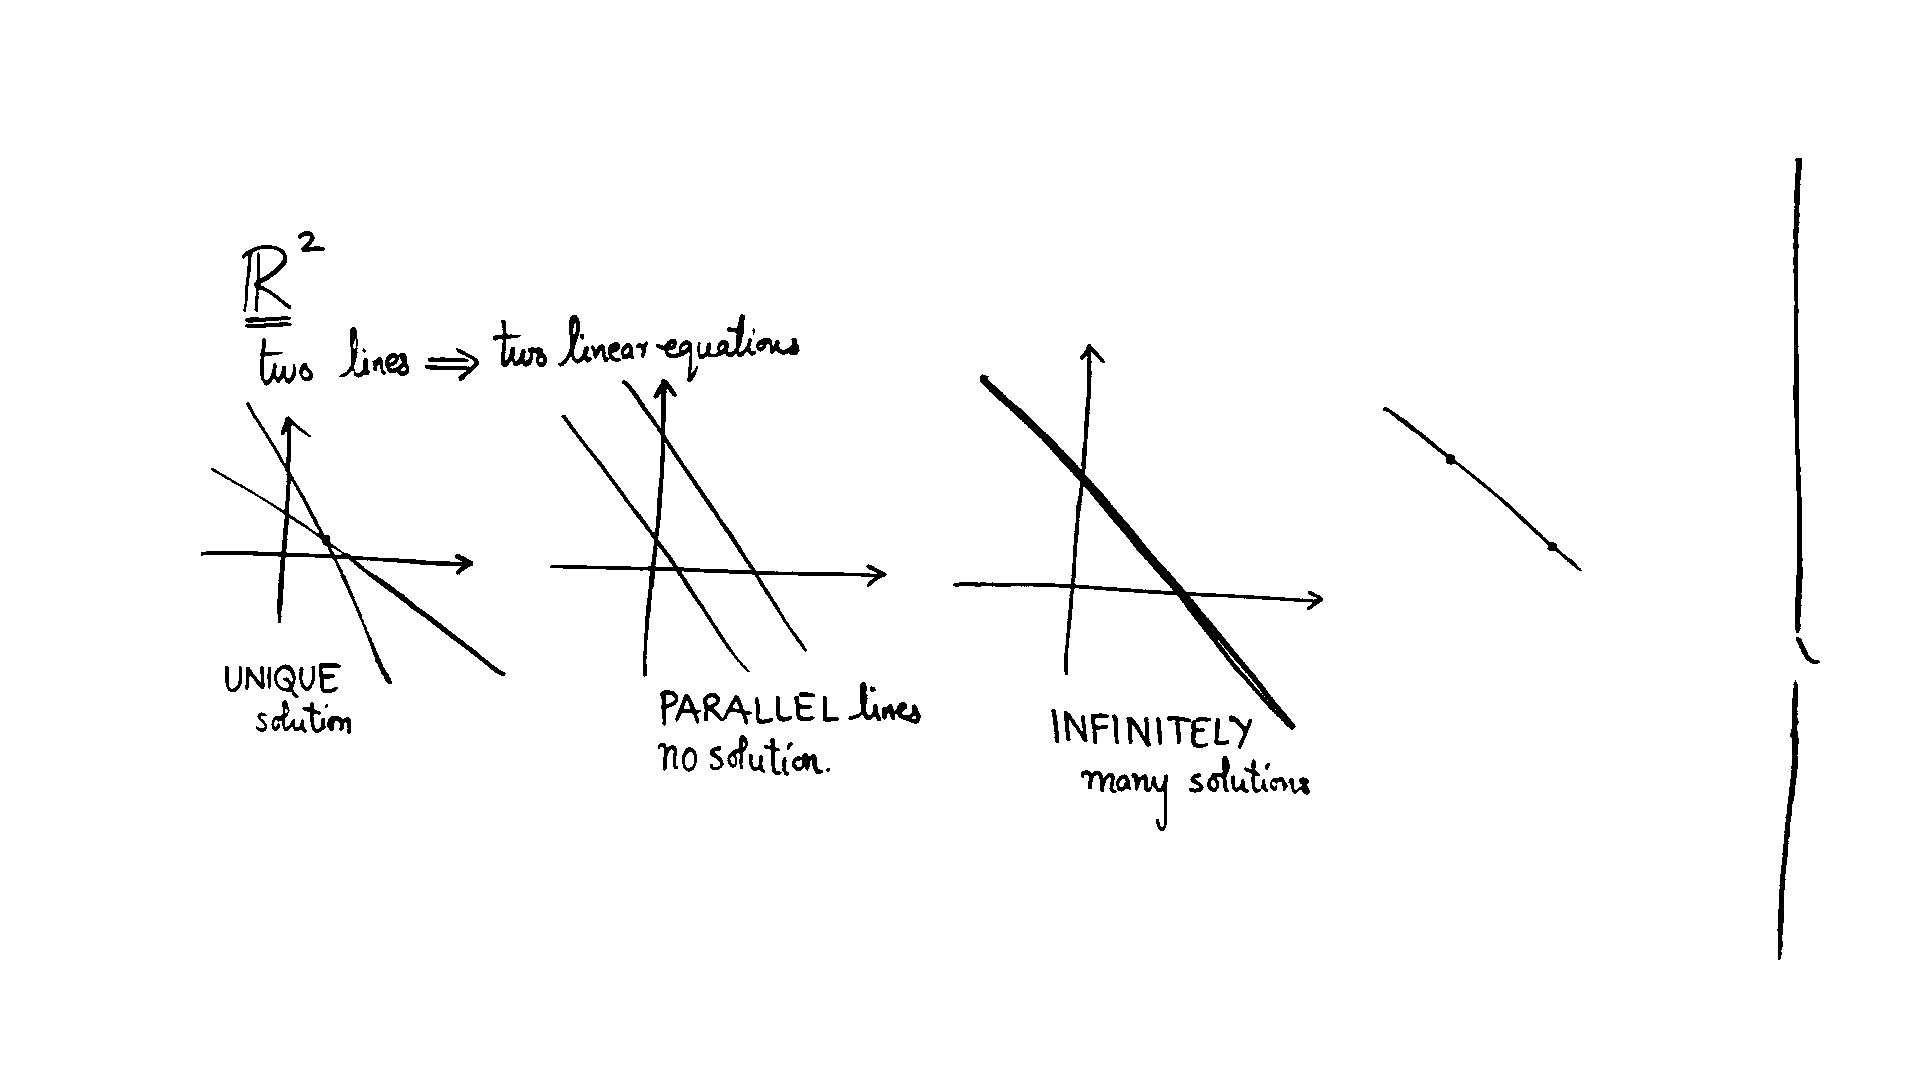 ℝ²
two lines ⇒ two linear equations
UNIQUE
solution
PARALLEL lines
no solution.
INFINITELY
many solutions